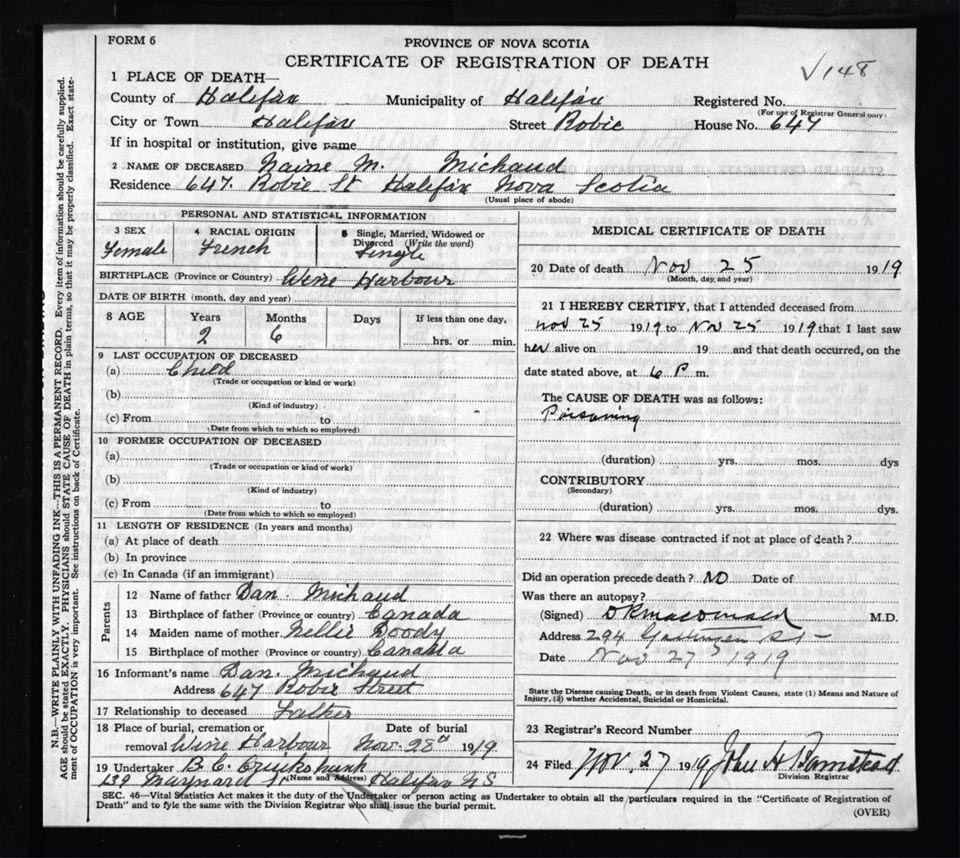 FORM 6
PROVINCE OF NOVA SCOTIA
CERTIFICATE OF REGISTRATION OF DEATH
√148
1 PLACE OF DEATH—
County of Halifax Municipality of Halifax Registered No.
(For use of Registrar General only)
City or Town Halifax Street Robie House No. 647
If in hospital or institution, give name
2 NAME OF DECEASED Naine M. Michaud
Residence 647. Robie St Halifax Nova Scotia
(Usual place of abode)
PERSONAL AND STATISTICAL INFORMATION
3 SEX 4 RACIAL ORIGIN 5 Single, Married, Widowed or Divorced (Write the word)
Female French Single
BIRTHPLACE (Province or Country) Wine Harbour
DATE OF BIRTH (month, day and year)
8 AGE Years Months Days If less than one day,
2 6 hrs. or min.
9 LAST OCCUPATION OF DECEASED
(a) Child
(Trade or occupation or kind or work)
(b)
(Kind of industry)
(c) From to
(Date from which to which so employed)
10 FORMER OCCUPATION OF DECEASED
(a)
(Trade or occupation or kind of work)
(b)
(Kind of industry)
(c) From to
(Date from which to which so employed)
11 LENGTH OF RESIDENCE (In years and months)
(a) At place of death
(b) In province
(c) In Canada (if an immigrant)
Parents
12 Name of father Dan. Michaud
13 Birthplace of father (Province or country) Canada
14 Maiden name of mother Nellie Doody
15 Birthplace of mother (Province or country) Canada
16 Informant's name Dan. Michaud
Address 647 Robie Street
17 Relationship to deceased Father
18 Place of burial, cremation or Date of burial
removal Wine Harbour Nov. 28d 1919
19 Undertaker B. C. Cruikshank
(Name and Address)
139 Maynard Halifax N S
MEDICAL CERTIFICATE OF DEATH
20 Date of death Nov 25 1919
(Month, day, and year)
21 I HEREBY CERTIFY, that I attended deceased from
Nov 25 1919 to Nov 25 1919 that I last saw
her alive on 19 and that death occurred, on the
date stated above, at 6 P m.
The CAUSE OF DEATH was as follows:
Poisoning
(duration) yrs. mos. dys
CONTRIBUTORY
(Secondary)
(duration) yrs. mos. dys.
22 Where was disease contracted if not at place of death?
Did an operation precede death? NO Date of
Was there an autopsy?
(Signed) DRMacDonald M.D.
Address 294 St
Date Nov 27 1919
State the Disease causing Death, or in death from Violent Causes, state (1) Means and Nature of
Injury, (2) whether Accidental, Suicidal or Homicidal.
23 Registrar's Record Number
24 Filed Nov. 27 1919 John H
Division Registrar
SEC. 46—Vital Statistics Act makes it the duty of the Undertaker or person acting as Undertaker to obtain all the particulars required in the "Certificate of Registration of
Death" and to fyle the same with the Division Registrar who shall issue the burial permit.
(OVER)
N.B.—WRITE PLAINLY WITH UNFADING INK—THIS IS A PERMANENT RECORD. Every item of information should be carefully supplied.
AGE should be stated EXACTLY. PHYSICIANS should STATE CAUSE OF DEATH in plain terms, so that it may be properly classified. Exact state-
ment of OCCUPATION is very important. See instructions on back of Certificate.